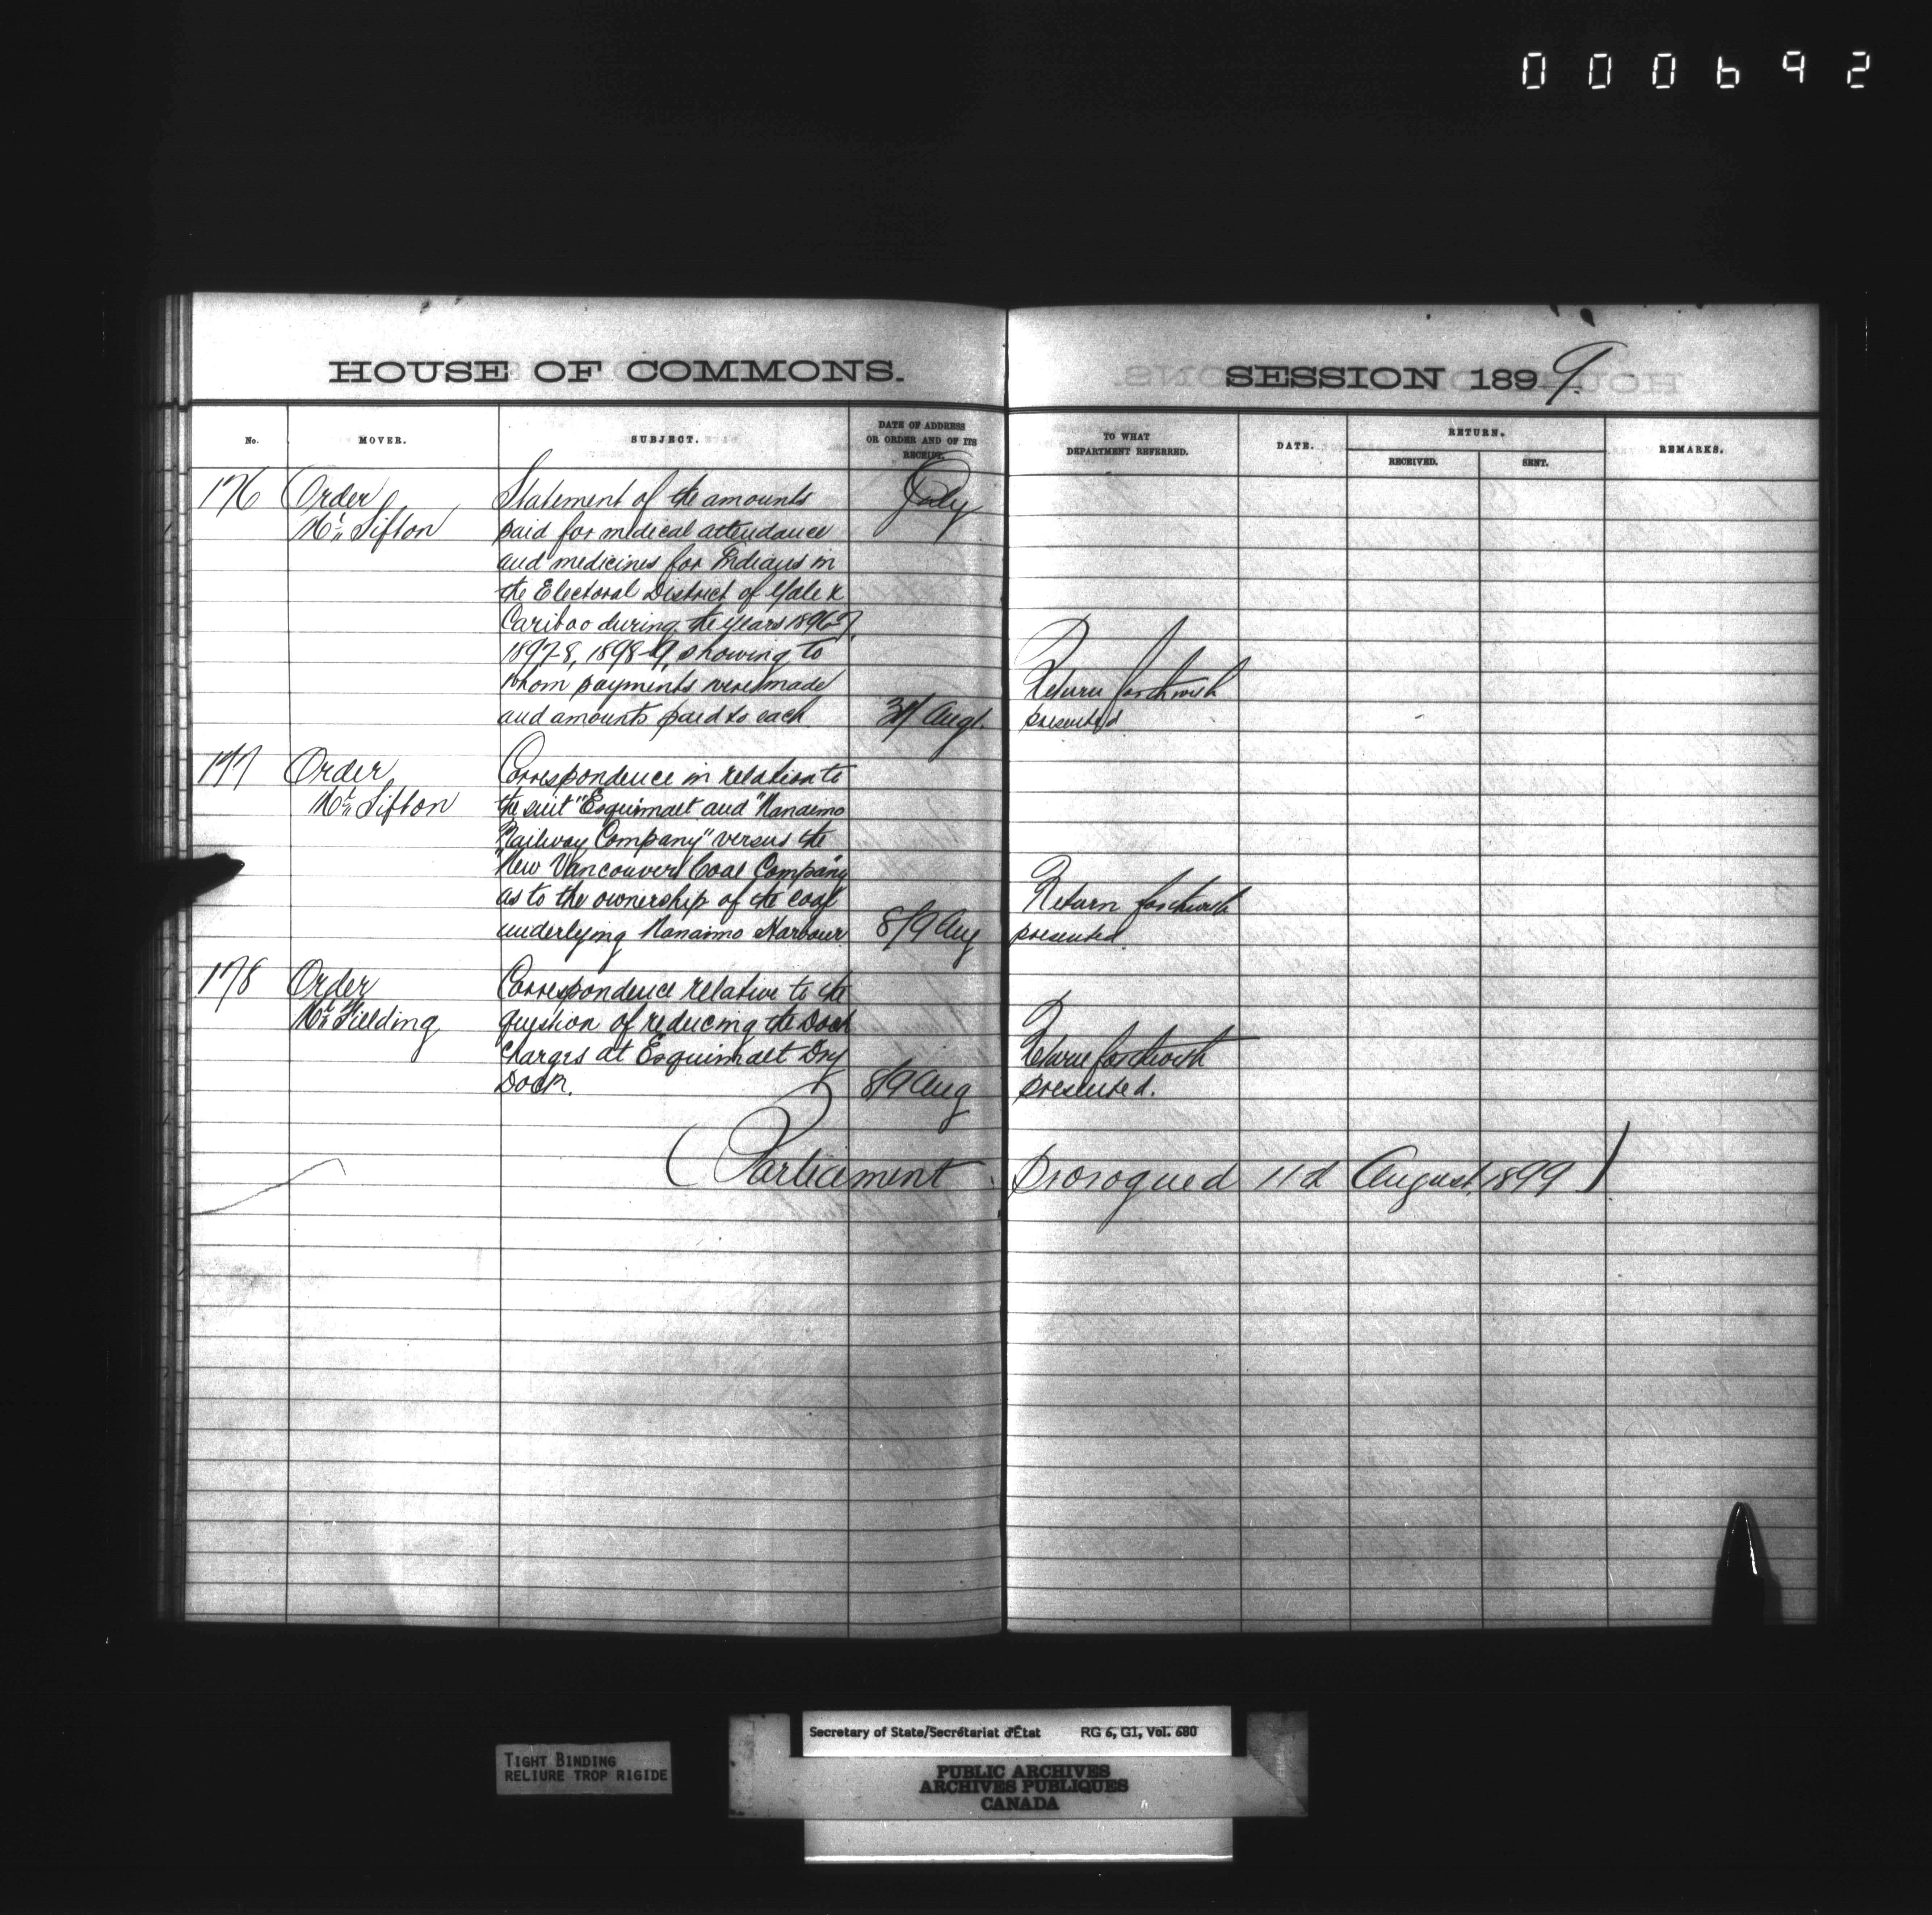 000692
HOUSE OF COMMONS.
No.
MOVER.
SUBJECT.
DATE OF ADDRESS
OR ORDER AND OF ITS
RECEIPT.
176 Order Statement of the amounts July
Mr. Sifton paid for medical attendance
and medicines for Indians in
the Electoral District of Yale &
Cariboo during the years 1896-7,
1897-8, 1898-9, showing to
whom payments were made
and amounts paid to each
Augt.
177 Order Correspondence in relation to
Mr. Sifton the suit "Esquimalt and "Nanaimo
Railway Company" versus the
"New Vancouver Coal Company"
as to the ownership of the coal
underlying Nanaimo Harbour 8/9 Aug
178 Order Correspondence relative to the
Mr. Fielding question of reducing the Dock
Charges at Esquimalt Dry
Dock. 8/9 Aug
SESSION 1899.
TO WHAT
DEPARTMENT REFERRED.
DATE.
RETURN.
RECEIVED.
SENT.
REMARKS.
Return forthwith
presented
Return forthwith
presented.
Return forthwith
presented.
(Parliament prorogued 11th August, 1899)
TIGHT BINDING
RELIURE TROP RIGIDE
Secretary of State/Secrétariat d'État RG 6, G1, Vol. 680
PUBLIC ARCHIVES
ARCHIVES PUBLIQUES
CANADA